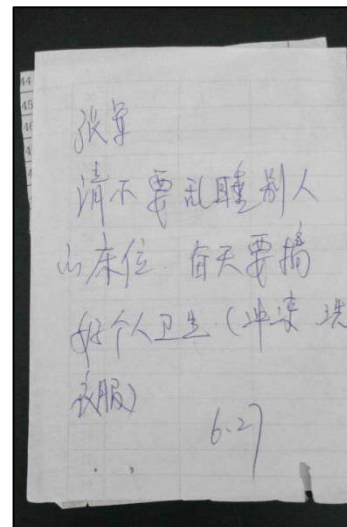 44
45
张军
清不要乱睡别人
的床位 每天要搞
好个人卫生（冲凉 洗
衣服）
6.27